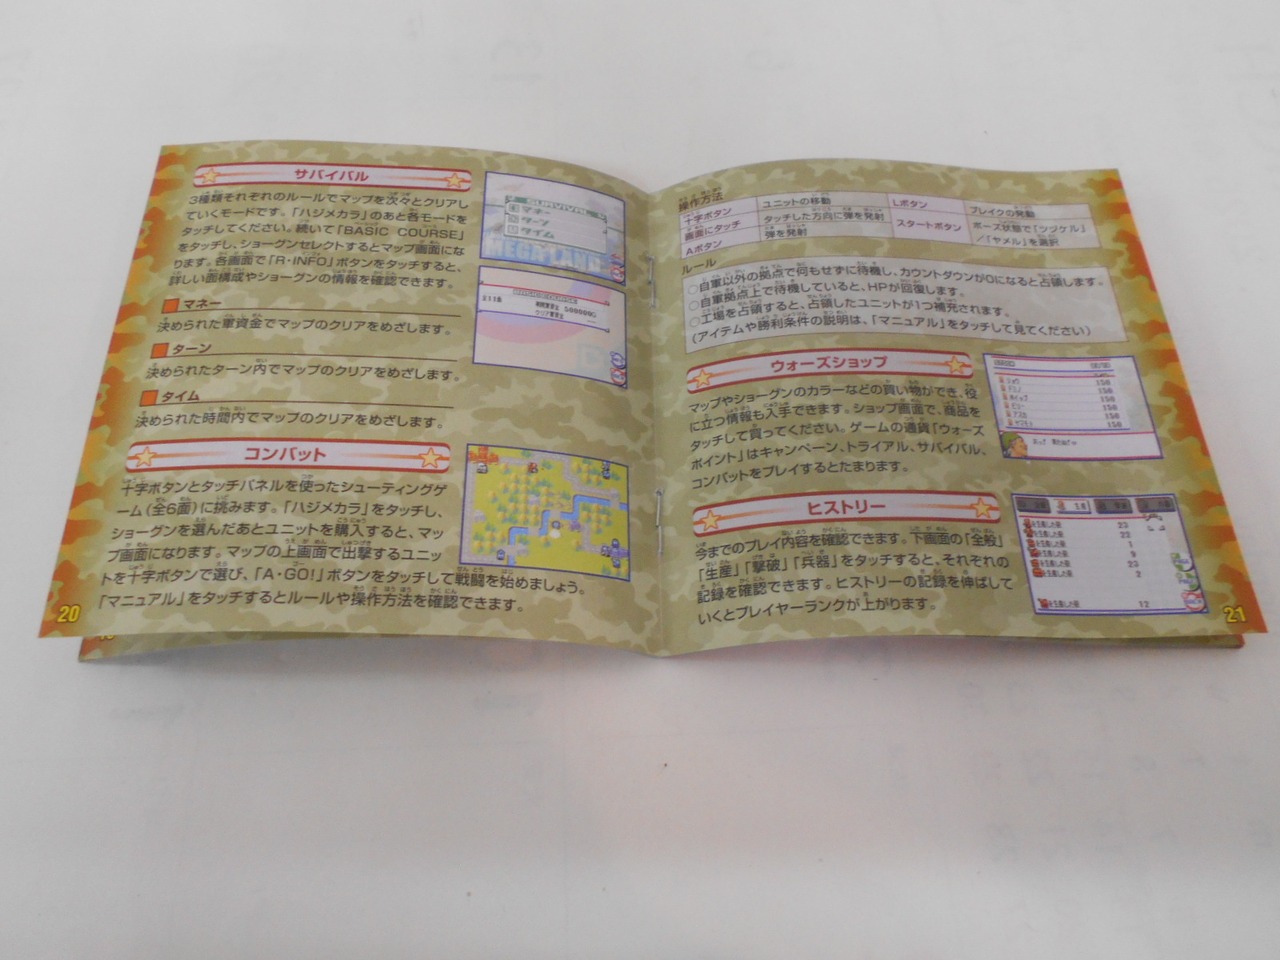 サバイバル
3種類それぞれのルールでマップを次々とクリアし
ていくモードです。「ハジメカラ」のあと各モードを
タッチしてください。続いて「BASIC COURSE」
をタッチし、ショーグンセレクトするとマップ画面にな
ります。各画面で「R・INFO」ボタンをタッチすると、
詳しい面構成やショーグンの情報を確認できます。
マネー
決められた軍資金でマップのクリアをめざします。
ターン
決められたターン内でマップのクリアをめざします。
タイム
決められた時間内でマップのクリアをめざします。
SURVIVAL
マネー
ターン
タイム
MEGALAND
コンバット
十字ボタンとタッチパネルを使ったシューティングゲ
ーム(全6面)に挑みます。「ハジメカラ」をタッチし、
ショーグンを選んだあとユニットを購入すると、マッ
プ画面になります。マップの上画面で出撃するユニッ
トを十字ボタンで選び、「A・GO!」ボタンをタッチして戦闘を始めましょう。
「マニュアル」をタッチするとルールや操作方法を確認できます。
20
操作方法
十字ボタン ユニットの移動 Lボタン ブレイクの発動
画面にタッチ タッチした方向に弾を発射 スタートボタン ポーズ状態で「ツヅケル」
Aボタン 弾を発射 /「ヤメル」を選択
ルール
○自軍以外の拠点で何もせずに待機し、カウントダウンが0になると占領します。
○自軍拠点上で待機していると、HPが回復します。
○工場を占領すると、占領したユニットが1つ補充されます。
(アイテムや勝利条件の説明は、「マニュアル」をタッチして見てください)
ウォーズショップ
マップやショーグンのカラーなどの買い物ができ、役
に立つ情報も入手できます。ショップ画面で、商品を
タッチして買ってください。ゲームの通貨「ウォーズ
ポイント」はキャンペーン、トライアル、サバイバル、
コンバットをプレイするとたまります。
150
150
150
150
150
150
ヒストリー
今までのプレイ内容を確認できます。下画面の「全般」
「生産」「撃破」「兵器」をタッチすると、それぞれの
記録を確認できます。ヒストリーの記録を伸ばして
いくとプレイヤーランクが上がります。
23
22
1
9
23
2
12
21